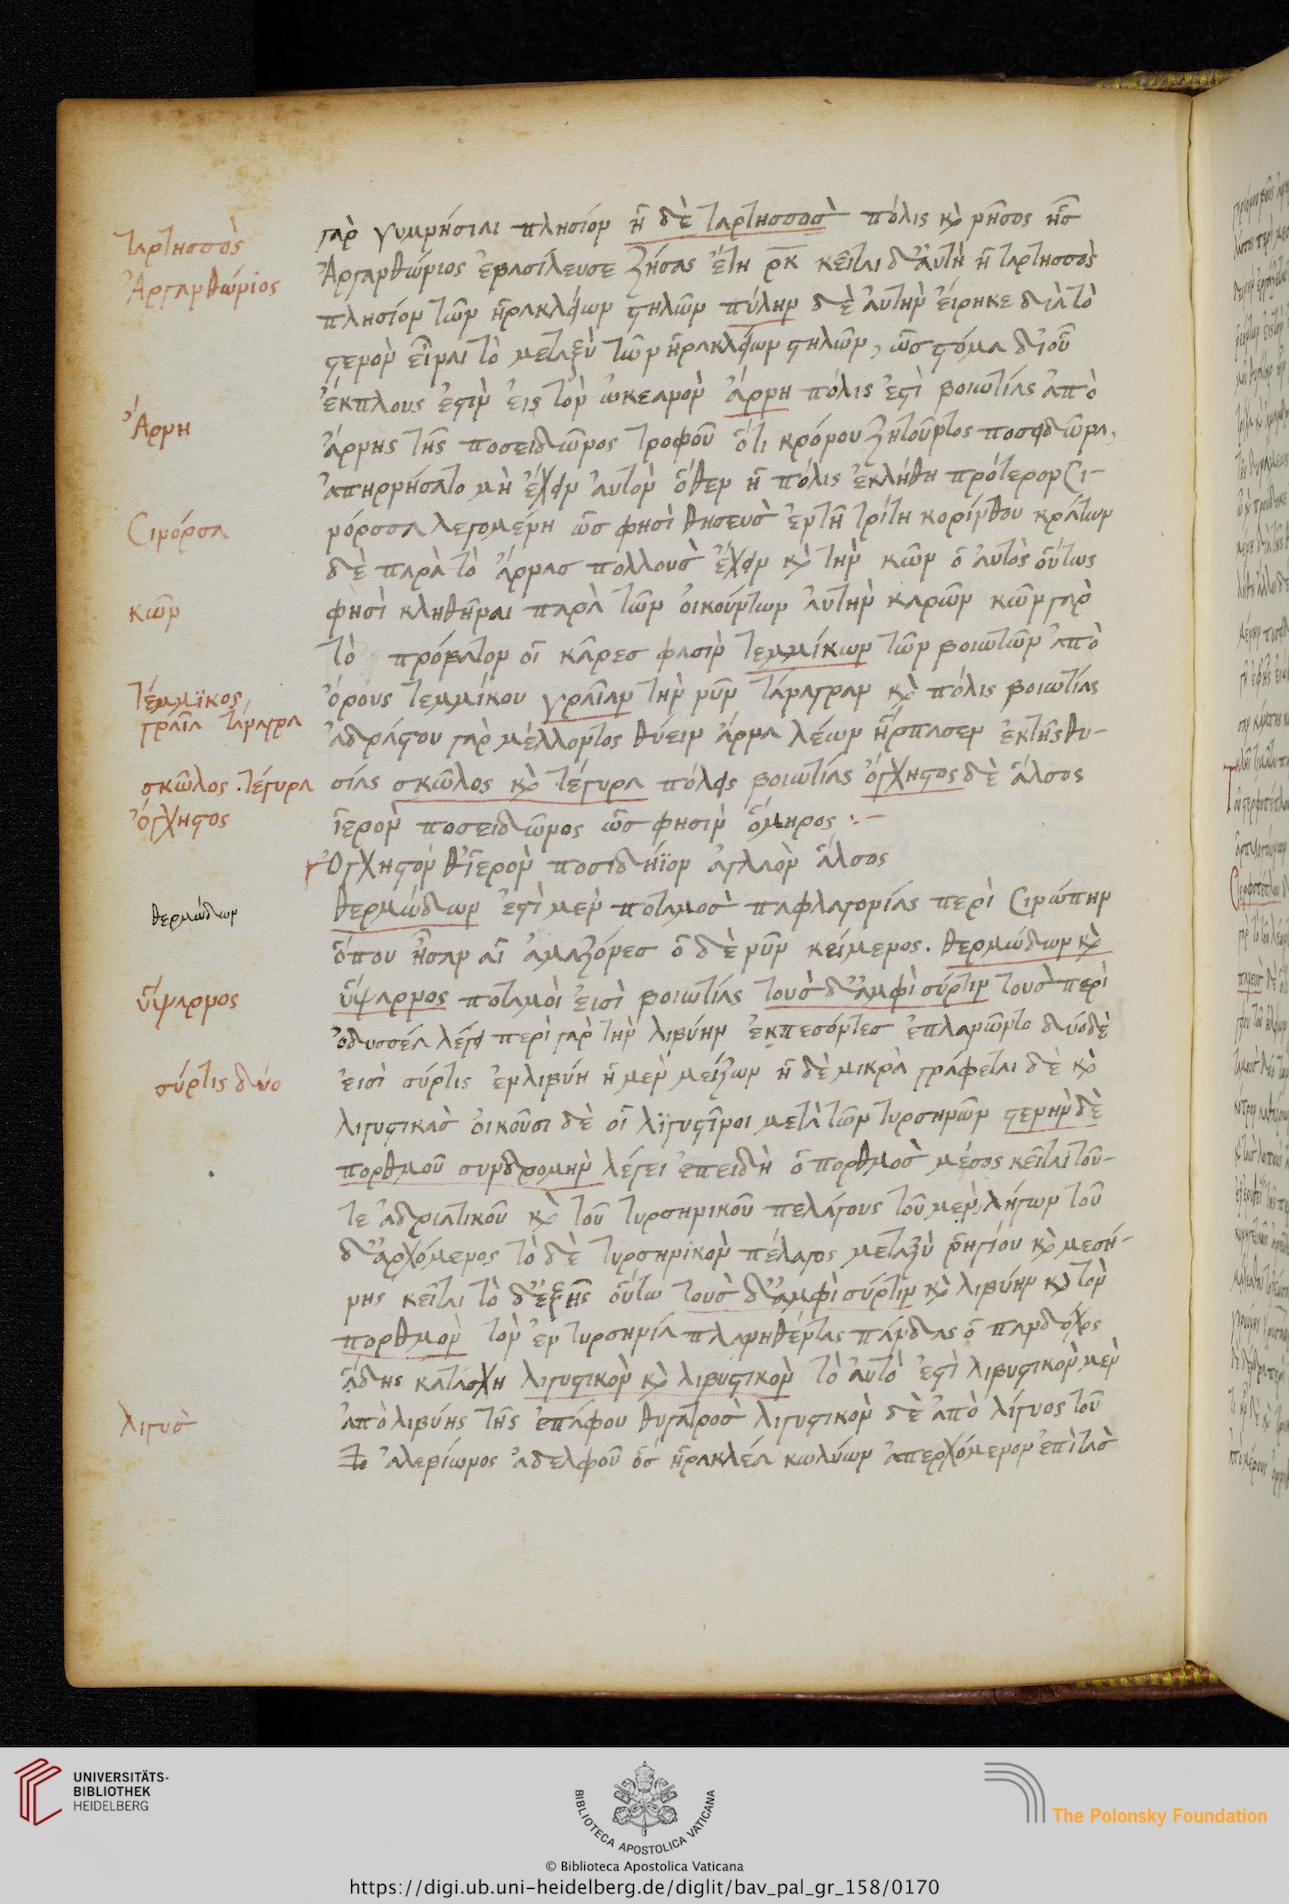 Ταρτησσὸς
Ἀργανθώνιος
Ἄρνη
Σινόρσα
κῶν
Τέμμϊκος
γραῖα τάναγρα
σκῶλος . τέγυρα
ὄγχηστος
θερμώδων
ὕψαρνος
σύρτις δύο
λίγυσ
γὰρ γυμνήσιαι πλησίον ἡ δὲ ταρτησσοσ πόλις κ̀ νῆσος ἧσ
Ἀργανθώνιος ἐβασίλευσε ζήσας ἔτη ρκ κεῖται δ' αὐτὴ ἡ ταρτησσὸς
πλησίον τῶν ἡρακλείων στηλῶν πύλην δὲ αὐτὴν εἴρηκε διὰ τὸ
στενὸν εἶναι τὸ μεταξὺ τῶν ἡρακλείων στηλῶν, ὡσ στόμα δι' οὗ
ἔκπλους ἐστὶν εἰς τὸν ὠκεανὸν ἄρνη πόλις ἐστὶ βοιωτίας ἀπὸ
ἄρνης τῆς ποσειδῶνος τροφοῦ ὅτι κρόνου ζητοῦντος ποσειδῶνα,
ἀπηρνήσατο μὴ ἔχειν αὐτὸν ὅθεν ἡ πόλις ἐκλήθη πρότερον Σι-
νόρσσα λεγομένη ὡσ φησὶ θησεὺσ ἐν τῇ τρίτη κορίνθου κράτων
δὲ παρὰ τὸ ἄρνασ πολλοὺσ ἔχειν κ̀ τὴν κῶν ὁ αὐτὸς οὕτως
φησὶ κληθῆναι παρὰ τῶν οἰκούντων αὐτὴν καρῶν κῶν γὰρ
τὸ πρόβατον οἱ κᾶρεσ φασὶν τεμμίκων τῶν βοιωτῶν ἀπὸ
ὄρους τεμμίκου γραῖαν τὴν νῦν τάναγραν κ̀ πόλις βοιωτίας
ἀδράστου γὰρ μέλλοντος θύειν ἅρμα λέων ἥρπασεν ἐκ τῆς θυ-
σίας σκῶλος κ̀ τέγυρα πόλεις βοιωτίας ὄγχηστος δὲ ἄλσος
ἱερὸν ποσειδῶνος ὡσ φησὶν ὅμηρος :-
Ὀγχηστόν θ' ἱερὸν ποσιδήϊον ἀγλαὸν ἄλσος
θερμώδων ἐστὶ μὲν ποταμοσ παφλαγονίας περὶ Σινώπην
ὅπου ἦσαν αἱ ἀμαζόνεσ ὁ δὲ νῦν κείμενος . θερμώδων κ̀
ὕψαρνος ποταμοὶ εἰσὶ βοιωτίας τοὺσ δ' ἀμφὶ σύρτιν τοὺσ περὶ
ὀδυσσέα λέγει περὶ γὰρ τὴν λιβύην ἐκπεσόντεσ ἐπλανῶντο δύο δὲ
εἰσὶ σύρτις ἐν λιβύη ἡ μὲν μείζων ἡ δὲ μικρὰ γράφεται δὲ κ̀
λιγυστικὰσ οἰκοῦσι δὲ οἱ λϊγυστῖνοι μετὰ τῶν τυρσηνῶν στενὴν δὲ
πορθμοῦ συνδρομὴν λέγει ἐπειδὴ ὁ πορθμοσ μέσος κεῖται τοῦ-
τε ἀδριατικοῦ κ̀ τοῦ τυρσηνικοῦ πελάγους τοῦ μὲν λήγων τοῦ
δ' ἀρχόμενος τὸ δὲ τυρσηνικὸν πέλαγος μεταξὺ ῥηγίου κ̀ μεσή-
νης κεῖται τὸ δ' ἑξῆς οὕτω τοὺσ δ' ἀμφὶ σύρτιν κ̀ λιβύην κ̀ τὸν
πορθμὸν τὸν ἐν τυρσηνία πλανηθέντας πάντας ὁ πανδοχος
ἅδης κατάσχη λιγυστικὸν κ̀ λιβυστικὸν τὸ αὐτὸ ἐστὶ λιβυστικὸν μὲν
ἀπὸ λιβύης τῆς ἐπάφου θυγατροσ λιγυστικὸν δὲ ἀπὸ λίγυος τοῦ
ἀλεβίωνος ἀδελφοῦ ὅσ ἡρακλέα κωλύων ἀπερχόμενον ἐπὶ τὰσ
UNIVERSITÄTS-
BIBLIOTHEK
HEIDELBERG
BIBLIOTECA APOSTOLICA VATICANA
The Polonsky Foundation
© Biblioteca Apostolica Vaticana
https://digi.ub.uni-heidelberg.de/diglit/bav_pal_gr_158/0170